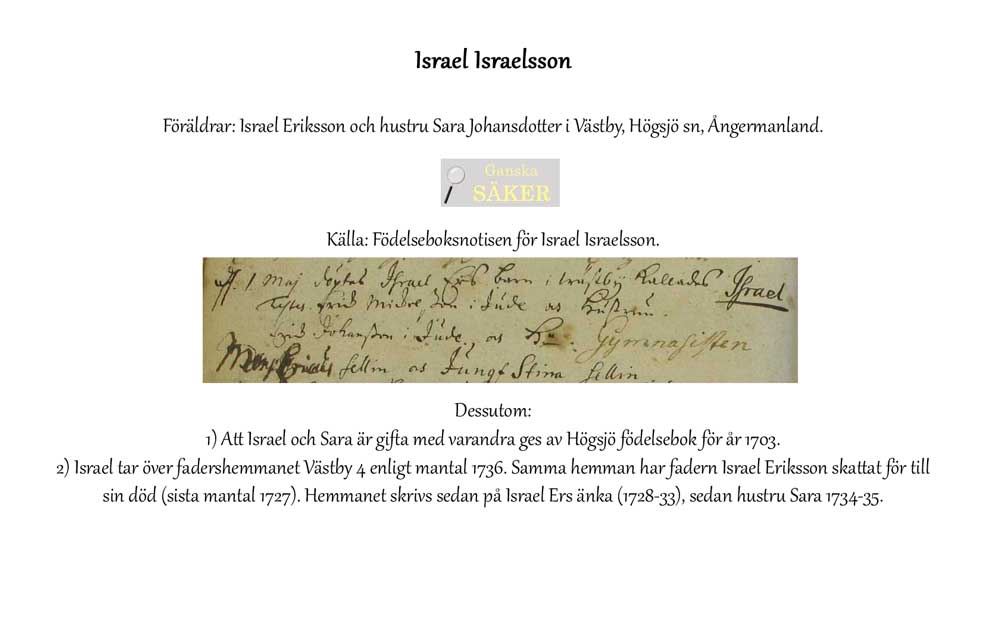 Israel Israelsson
Föräldrar: Israel Eriksson och hustru Sara Johansdotter i Västby, Högsjö sn, Ångermanland.
Ganska
SÄKER
Källa: Födelseboksnotisen för Israel Israelsson.
1 Maj döptes Israel Ers Barn i wästby kallades Israel
i Jude os Hustrun.
Johansson i Jude, os H
Gymnasisten
Sellin os Jungf Stina Sellin
Dessutom:
1) Att Israel och Sara är gifta med varandra ges av Högsjö födelsebok för år 1703.
2) Israel tar över fadershemmanet Västby 4 enligt mantal 1736. Samma hemman har fadern Israel Eriksson skattat för till
sin död (sista mantal 1727). Hemmanet skrivs sedan på Israel Ers änka (1728-33), sedan hustru Sara 1734-35.